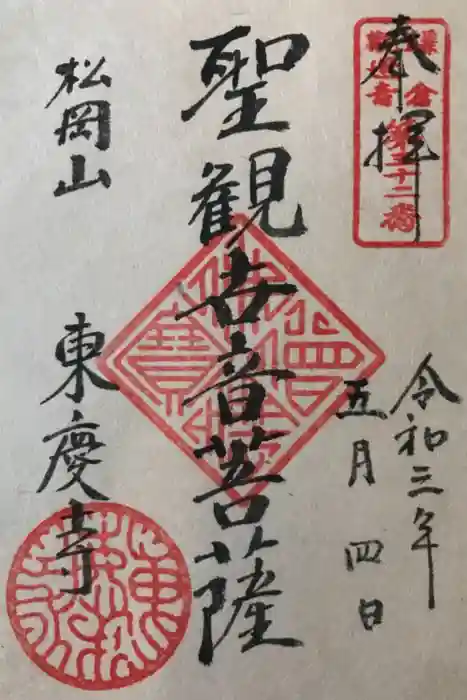 奉拝
第三十二番
令和三年
五月四日
聖観世音菩薩
佛法僧寶
松岡山
東慶寺